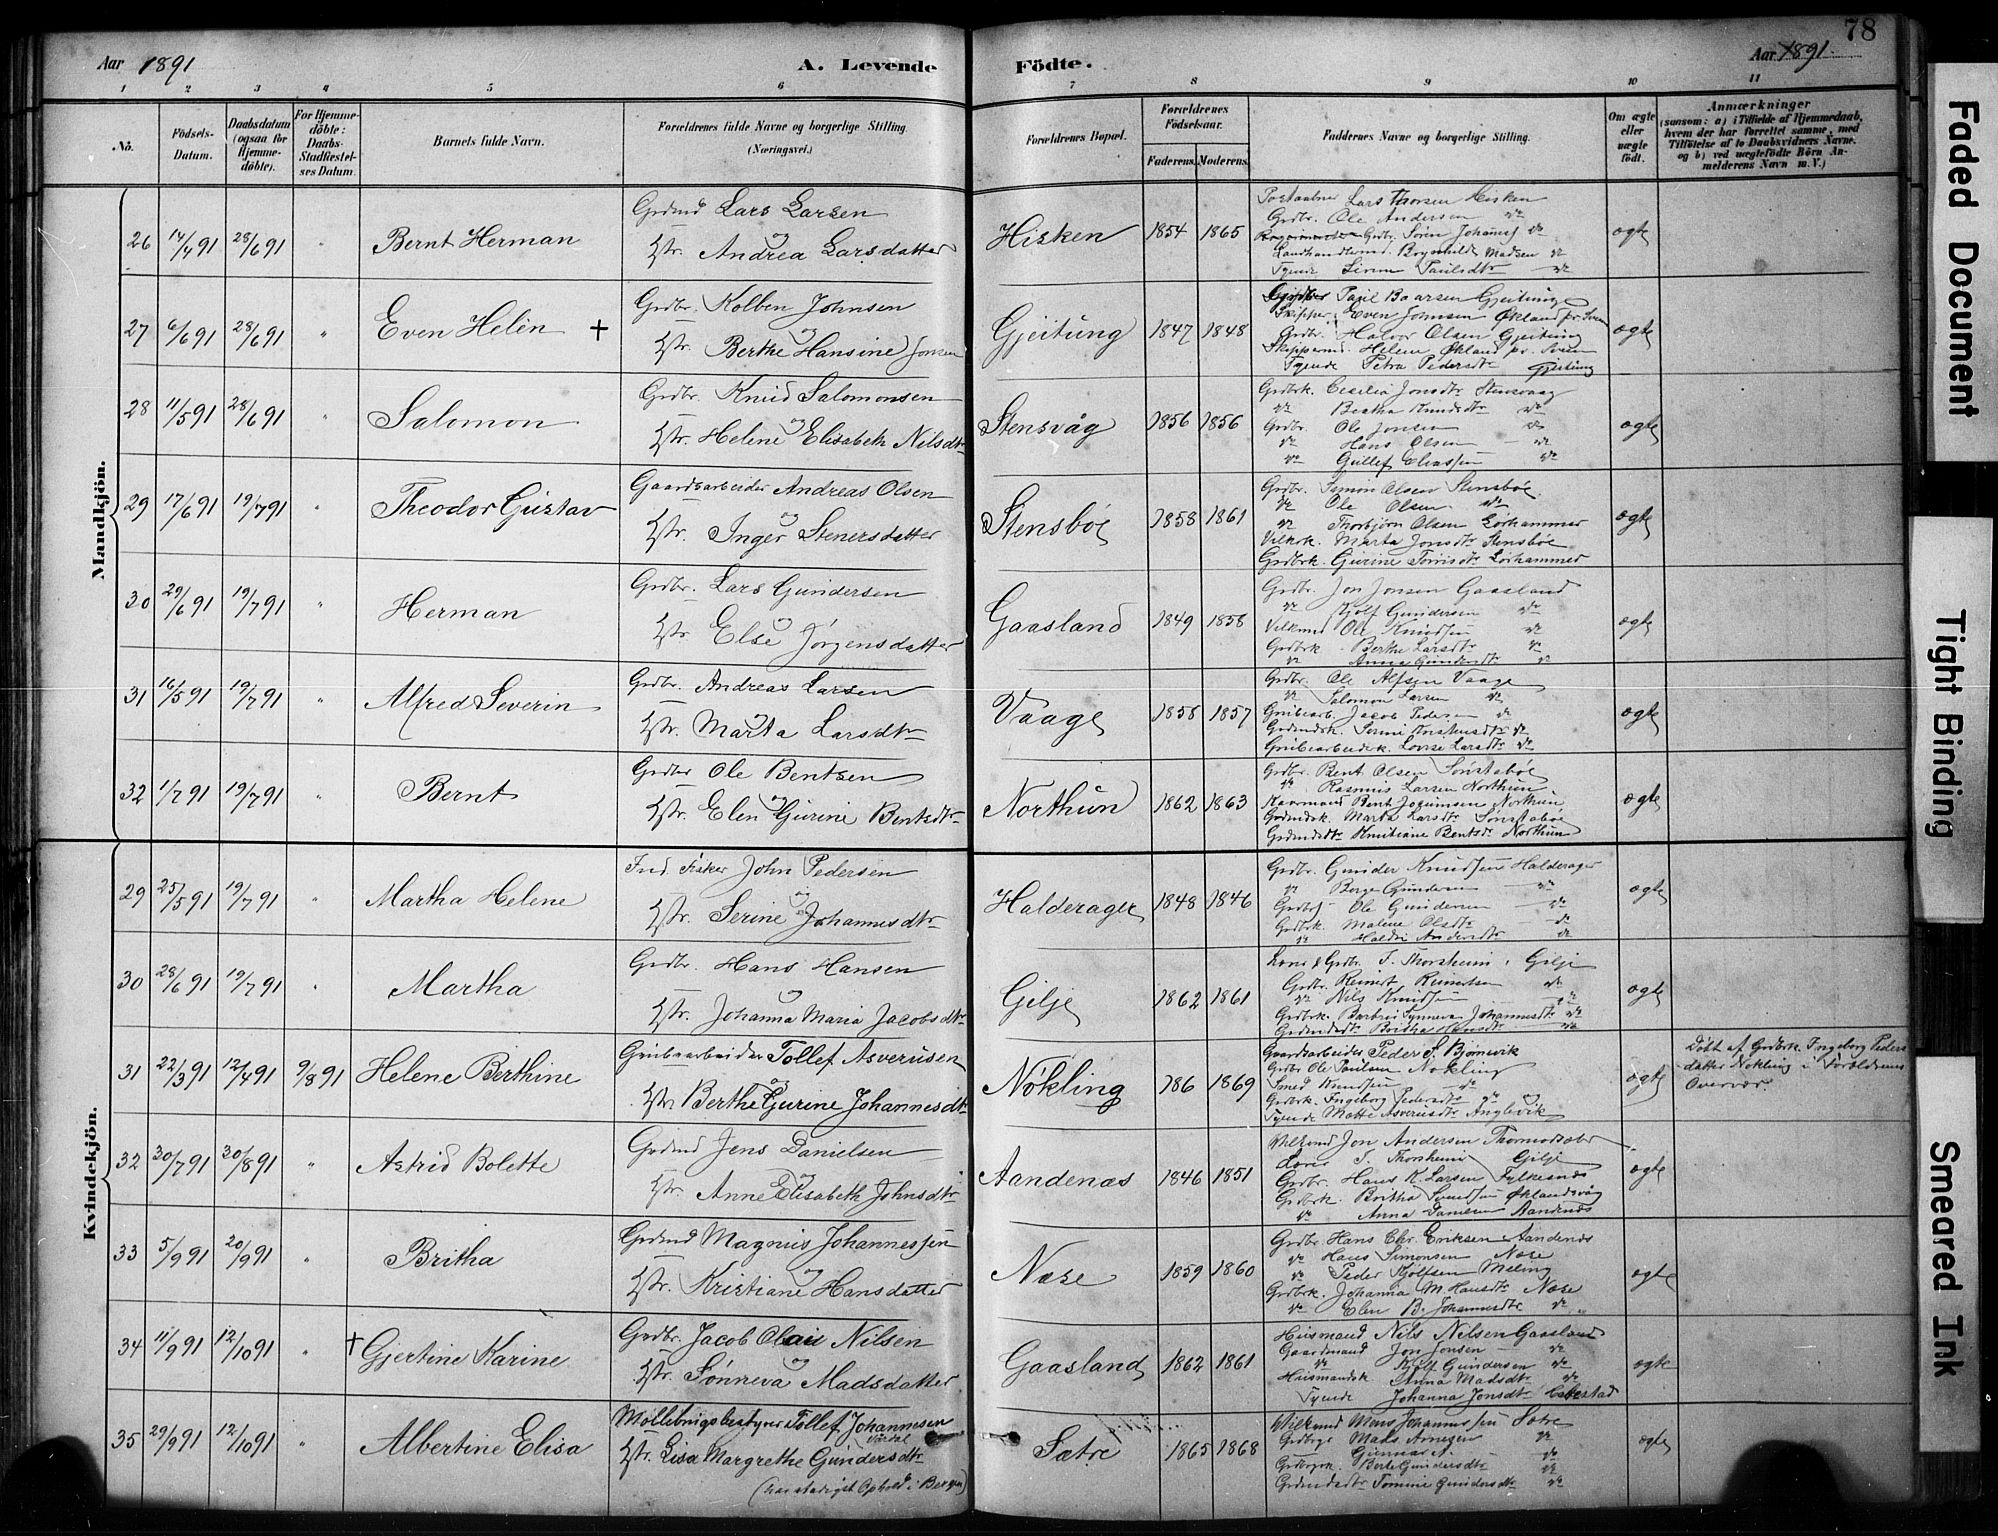 78
Aar 1891
A. Levende
Födte.
Aar 1891
1 2 3 4 5 6 7 8 9 10 11
No.
Födsels-
Datum.
Daabsdatum
(ogsaa för
Hjemme-
döbte).
For Hjemme-
döbte:
Daabs-
Stadfæstel-
ses Datum.
Barnets fulde Navn.
Forældrenes fulde Navne og borgerlige Stilling.
(Næringsvei.)
Forældrenes Bopæl.
Forældrenes
Födselsaar.
Faderens. Moderens.
Faddernes Navne og borgerlige Stilling.
Om ægte
eller
uægte
födt.
Anmærkninger
(saasom: a) i Tilfælde af Hjemmedaab,
hvem der har forrettet samme, med
Tilföielse af to Daabsvidners Navne,
og b) ved uægtefödte Börn An-
melderens Navn m. V.)
Mandkjön.
26 14/4 91 28/6 91 " Bernt Herman
Grdmd Lars Larsen
og
Hstr. Andrea Larsdatter
Hisken 1854 1865
Lars Thorsen Hisken
Grdbr. Ole Andersen do
Grdbr. Sören Johannes do
Brynhilde Madsen do
Tjende Paulsdtr do
ægte
27 6/6 91 28/6 91 " Even Helén †
Grdbr. Kolben Johnsen
og
Hstr. Berthe Hansine Jonsen
Gjeitung 1847 1848
Paul Baarsen Gjeitung
Skipper Even Johnsen Økland pr. Sveen
Grdbr. Halvor Olsen Gjeitung
Helene Økland pr. Sveen
Tjende Petra Pedersdtr Gjeitung
ægte
28 11/5 91 28/6 91 " Salomon
Grdbr. Knud Salomonsen
og
Hstr. Helene Elisabeth Nilsdtr
Stensvåg 1856 1856
Grdbrk. Cecilia Jonsdtr Stensvaag
do Bertha Knudsdtr do
Grdbr. Ole Jonsen do
do Hans Olsen do
do Gullef Eliassen do
ægte
29 17/6 91 19/7 91 " Theodor Gustav
Gaardsarbeider Andreas Olsen
og
Hstr. Inger Stenersdatter
Stensböe 1858 1861
Grdbr. Simon Olsen Stensböe
do Ole Olsen do
do Thorbjörn Olsen Lörhammer
Marta Jonsdtr Stensböe
Grdbrk. Gurine Lörhammer
ægte
30 29/6 91 19/7 91 " Herman
Grdbr. Lars Gundersen
og
Hstr. Else Jörgensdatter
Gaasland 1849 1858
Grdbr. Jon Jonsen Gaasland
do Kjölf Gundersen do
Ole Knudsen do
Grdbrk. Berthe Larsdtr do
do Anna Gundersdtr do
ægte
31 16/5 91 19/7 91 " Alfred Severin
Grdbr. Andreas Larsen
og
Hstr. Marta Larsdtr
Vaage 1858 1857
Grdbr. Ole Alfsen Vaage
do Salomon Larsen do
Grubearb. Jacob Pedersen do
do
Grubearbeidrk. Lovise Larsdtr do
ægte
32 1/7 91 19/7 91 " Bernt
Grdbr Ole Bentsen
og
Hstr. Elen Gurine Bentsdtr
Northun 1862 1863
Grdbr. Bent Olsen Sönstaböe
do Rasmus Larsen Northun
Kaarmand Bent Joguimsen Northun
Grdmdsk. Marta Larsdtr Sönstaböe
Bentsdtr Northun
ægte
Kvindekjön.
29 25/5 91 19/7 91 " Martha Helene
Ind. Fisker John Pedersen
og
Hstr. Serine Johannesdtr
Halderager 1848 1846
Grdbr. Gunder Knudsen Halderager
do Börge Gundersen do
Ole Gundersen do
Grdbrk. Malene Olsdtr do
do Andersdtr do
ægte
30 28/6 91 19/7 91 " Martha
Grdbr. Hans Hansen
og
Hstr. Johanna Maria Jacobsdtr
Gilje 1862 1861
Grdbr. T. Thorsheim Gilje
Grdbr. Reinert Reinertsen do
do Nils Knudsen do
Grdbrk. Synneva Johannesdtr do
Britha Hansdtr do
ægte
31 22/3 91 12/4 91 9/8 91 Helene Berthine
Grubearbeider Tollef Asverusen
og
Hstr Berthe Gurine Johannesdtr
Nökling 186 1869
Gaardsarbeider Peder S. Bjørnevik
Grdbr Ole Paulsen Nökling
Smed Knudsen do
Grdbrk. Ingeborg Pedersdtr do
Tjende Mætte Asverusdtr Anglevik
ægte
Döbt af Grdbrk. Ingeborg Peders
datter Nökling i Foreldrenes
Overvær
32 30/7 91 30/8 91 " Astrid Bolette
Grdmd Jens Danielsen
og
Hstr. Anne Elisabeth Johnsdtr
Aandenæs 1846 1851
Jon Andersen Thormodsæter
T. Thorsheim Gilje
Grdbr. Hans K. Larsen Fylkesnæs
Grdbrk. Britha Svendsen Øklandsvåg
do Anna Danielsen Aandenæs
ægte
33 5/9 91 20/9 91 " Britha
Grdmd Magnus Johannessen
og
Hstr. Kristiane Hansdatter
Næse 1859 1860
Grdbr. Hans Chr. Eriksen Aandenæs
do Hans Simonsen Næse
do Peder Kjölfsen Meling
Grdbrk. Johanna M. Hansdtr Næse
do Elen B. Johannesdtr do
ægte
34 11/9 91 12/10 91 " † Gjertine Karine
Grdbr. Jacob Olai Nilsen
og
Hstr. Sønneva Madsdatter
Gaasland 1862 1861
Husmand Nils Nilsen Gaasland
Gaardmand Jon Jonsen do
do Kjölf Gundersen do
Husmandsk. Anna Madsdtr do
Tjende Johanna Jonsdtr
ægte
35 29/9 91 12/10 91 " Albertine Elisa
Tollef Johannesen
Vardal
Hstr. Lisa Margrethe Gundersdtr
(har stadigst Ophold i Bergen)
Sætre 1865 1868
Mons Johannessen Sætre
Mads Arnesen do
Gunnar A. do
Berte Gundersdtr do
Tomine Gundersdtr do
ægte
Faded Document
Tight Binding
Smeared Ink